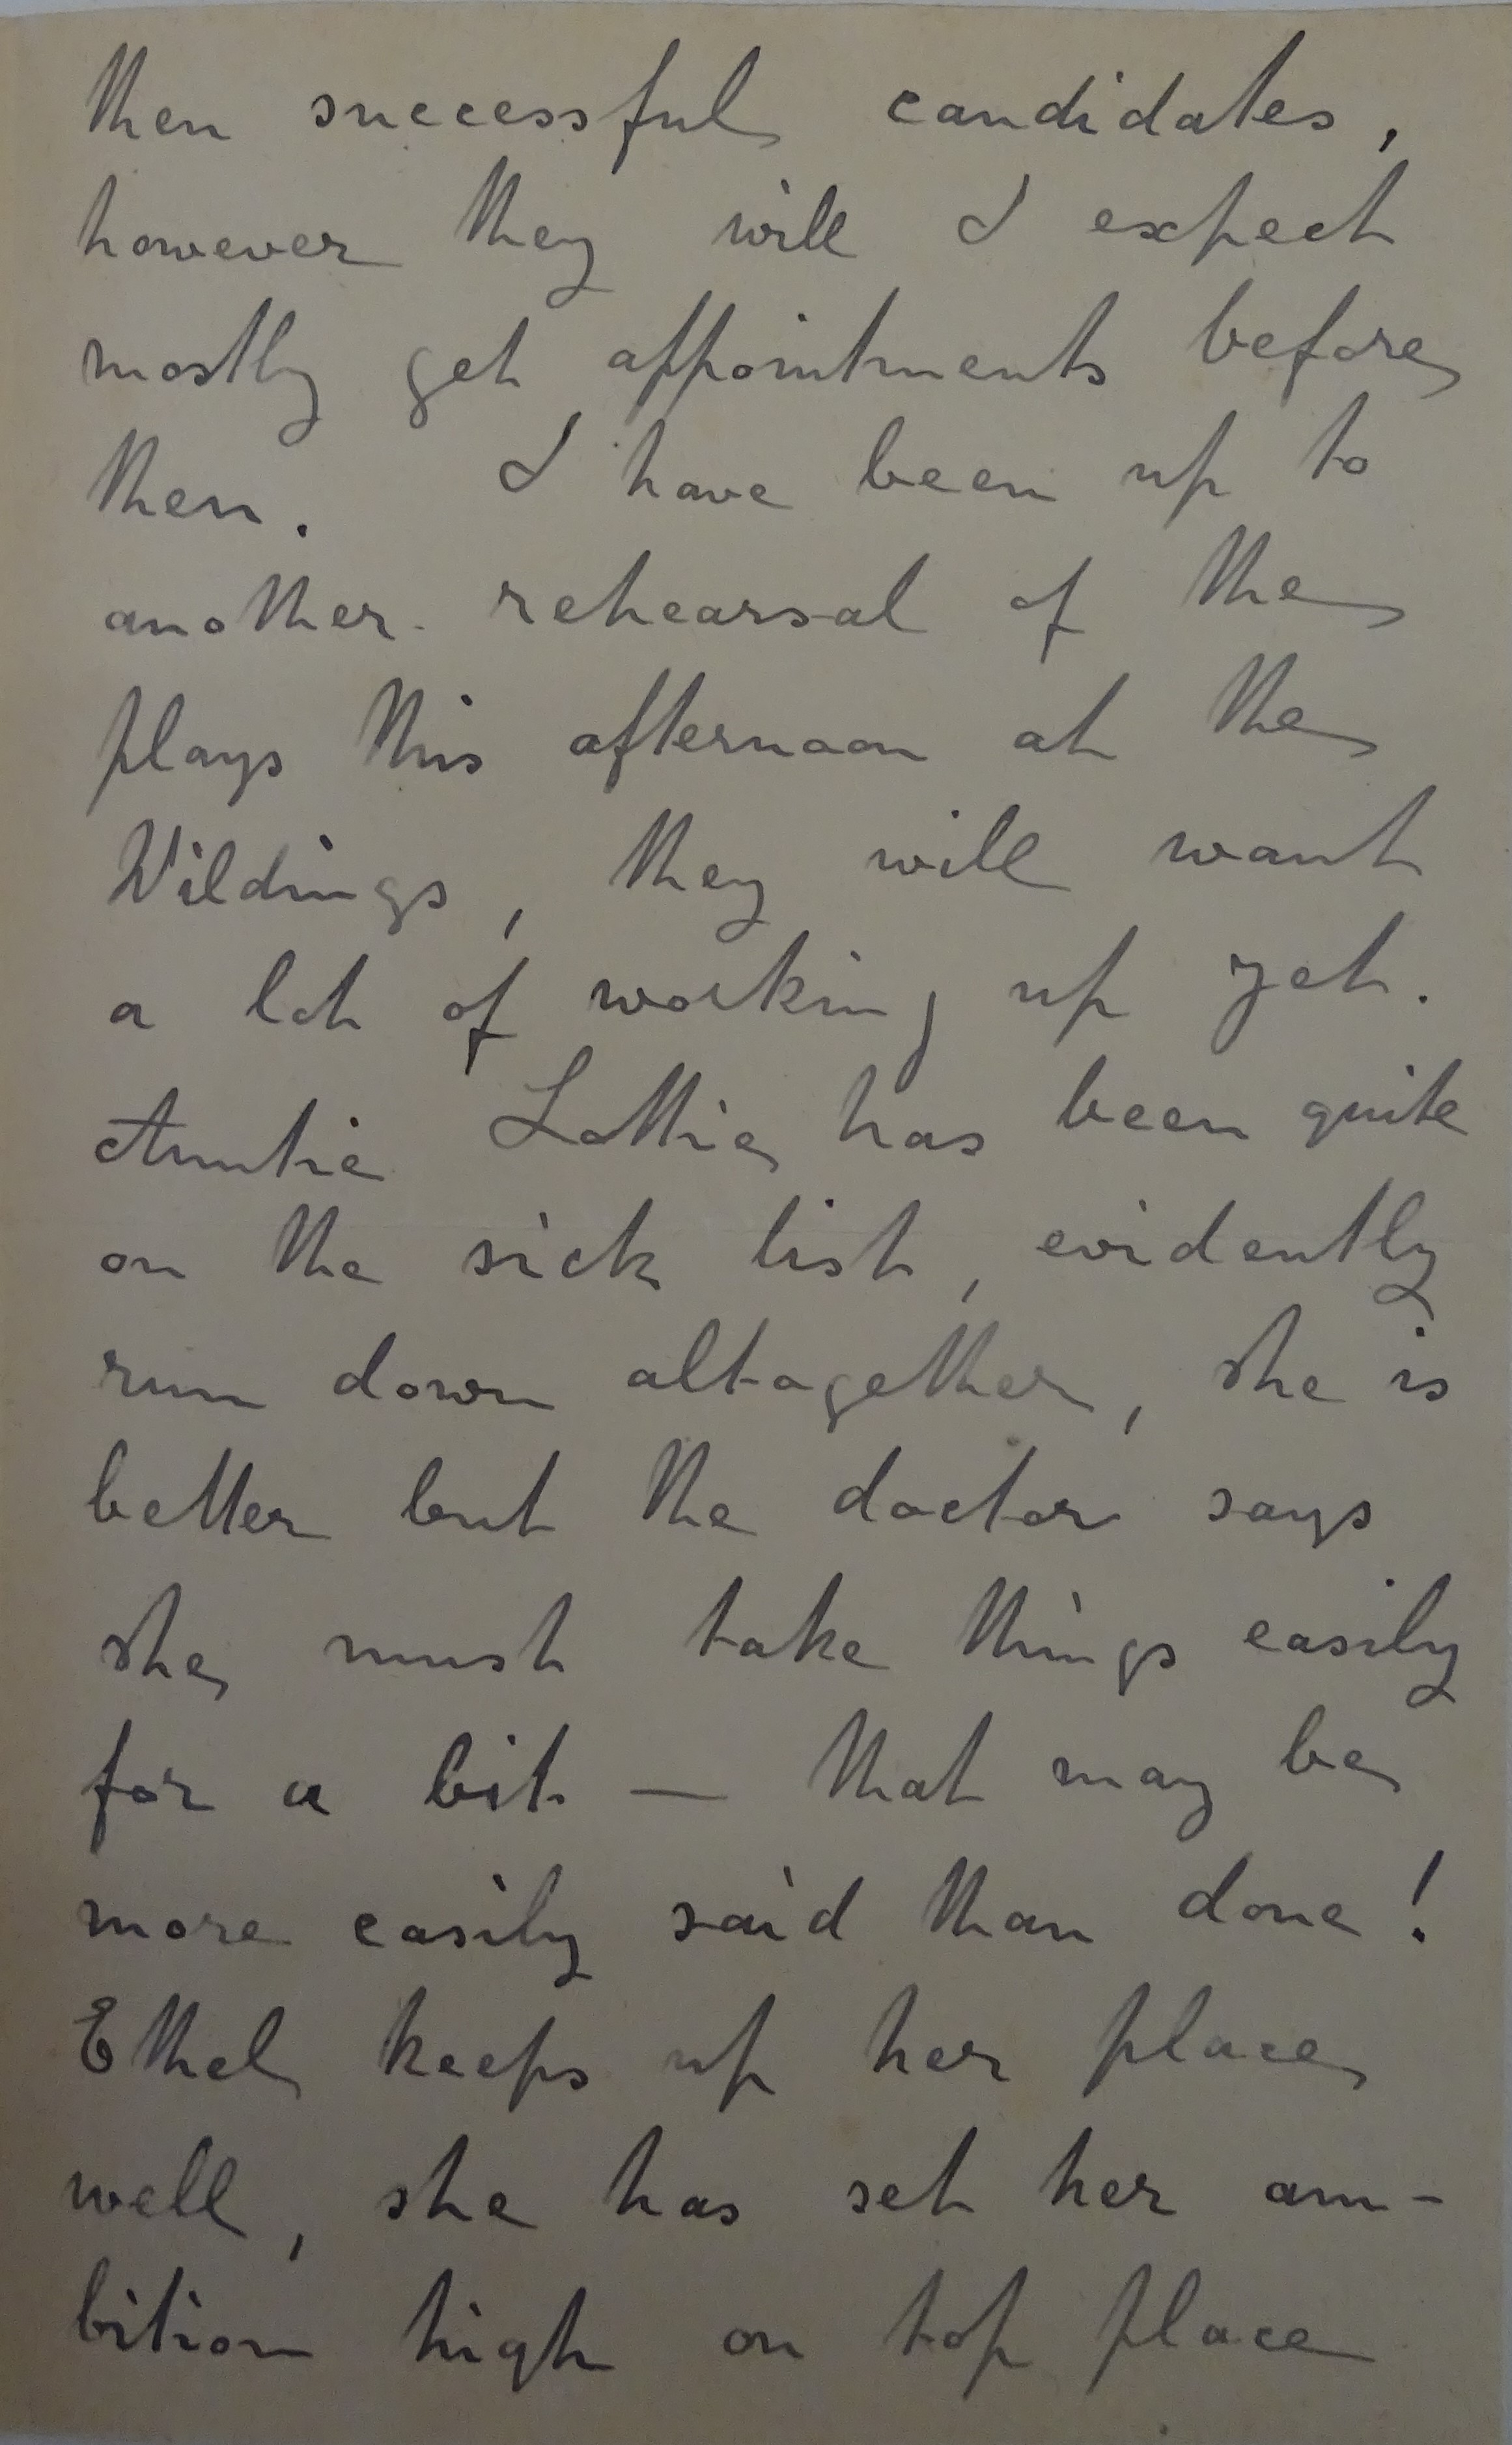 then successful candidates,
however they will I expect
mostly get appointments before
then. I have been up to
another rehearsal of the
plays this afternoon at the
Wildings, they will want
a lot of working up yet.
Auntie Lottie has been quite
on the sick list, evidently
run down altogether, she is
better but the doctor says
she must take things easily
for a bit — that may be
more easily said than done!
Ethel keeps up her place
well, she has set her am-
bition high on top place